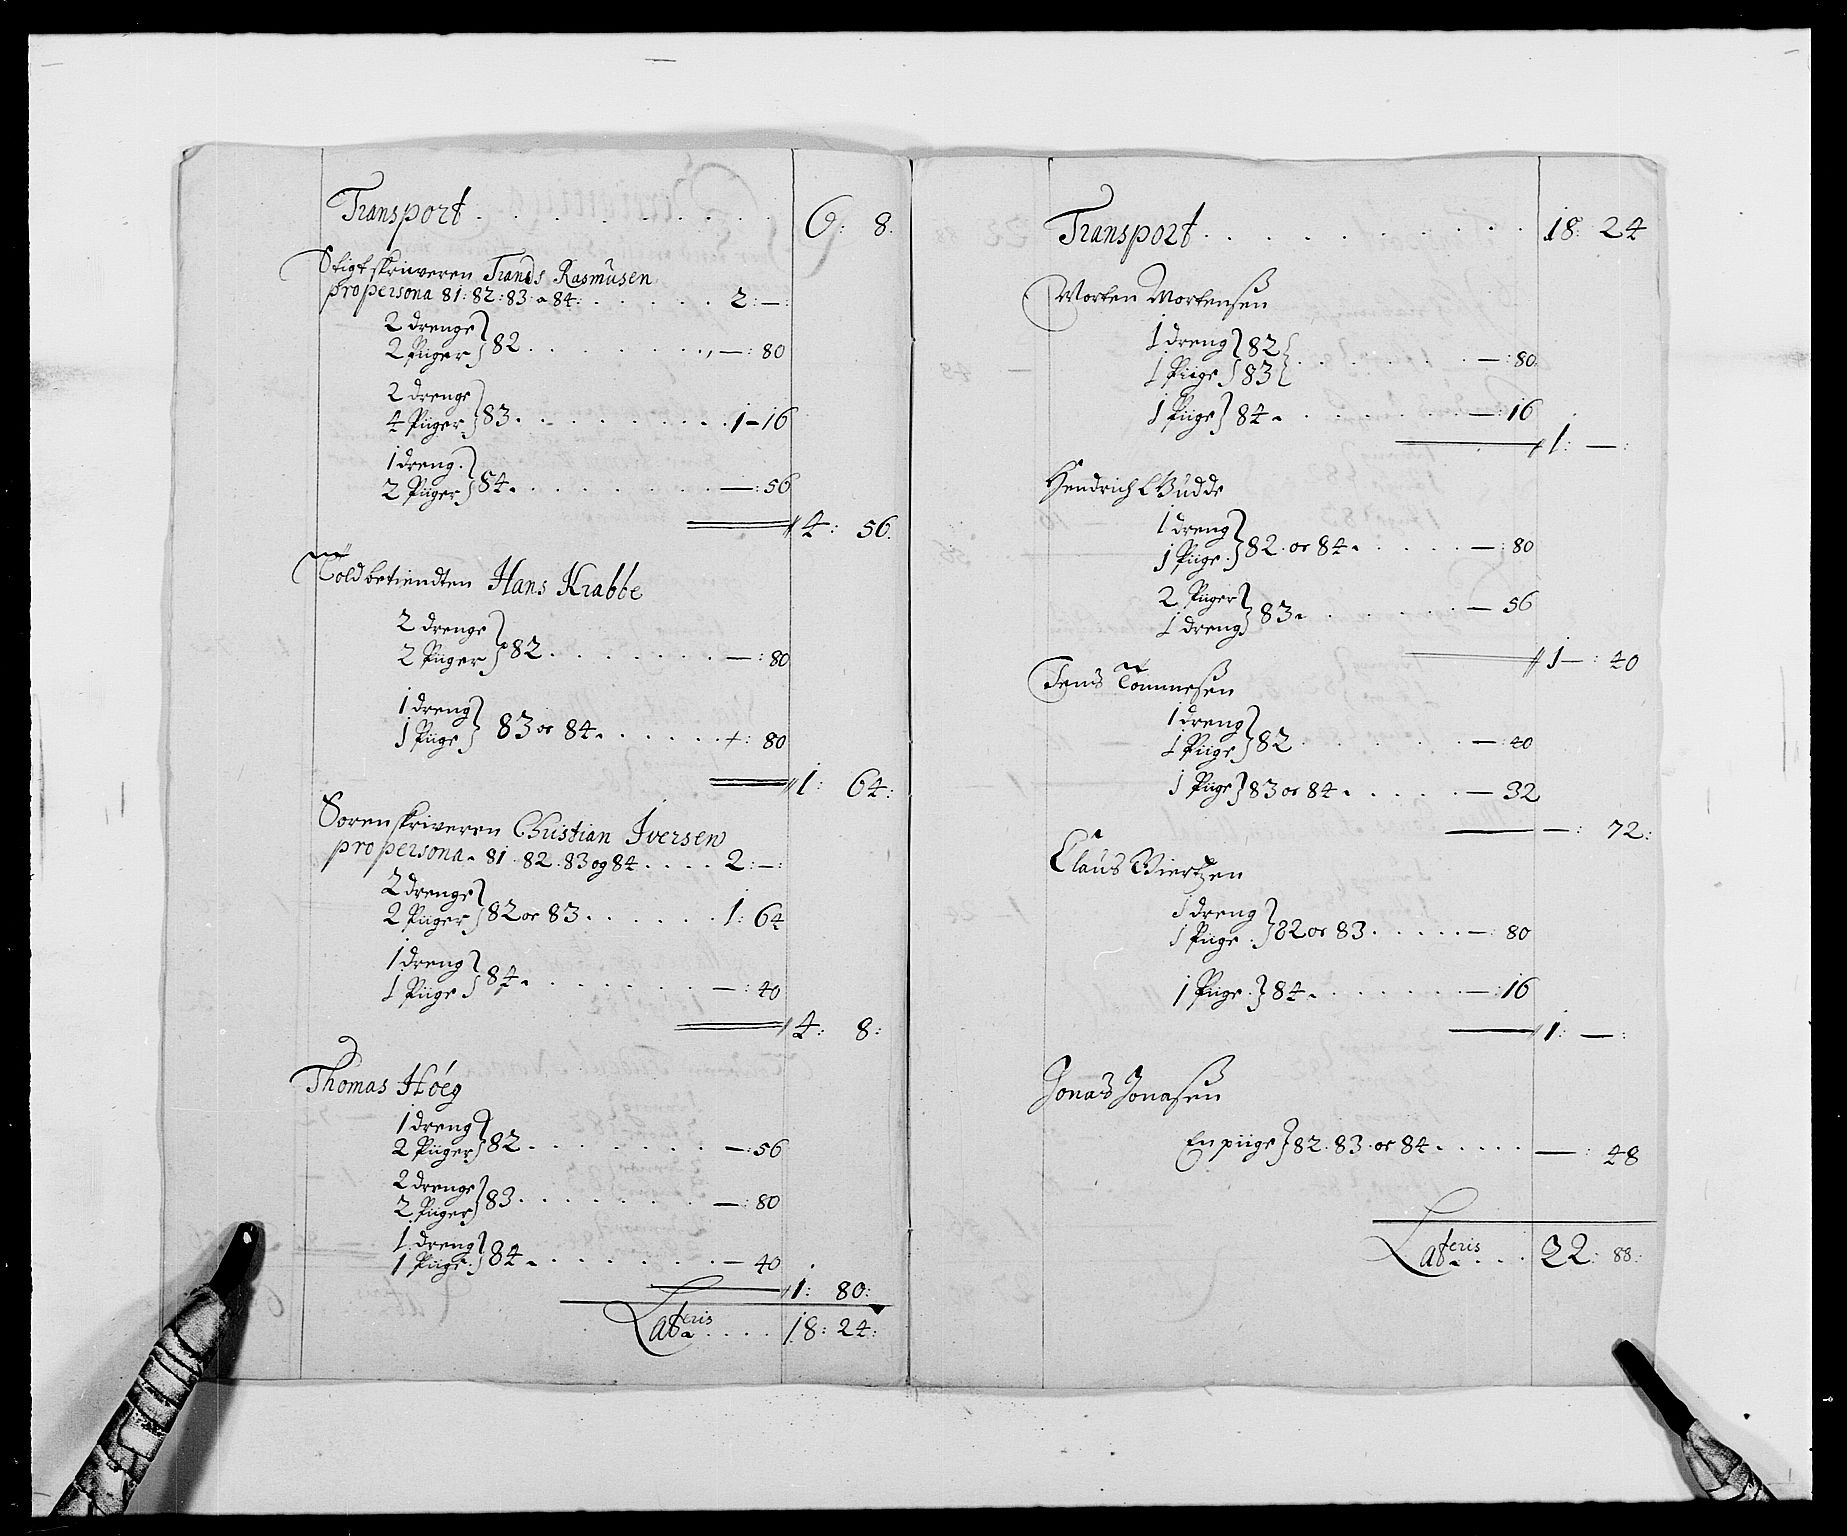 Transport . . . . . . . . . 6: 8.
Stigtskriweren Frands Rasmusen
pro persona 81: 82: 83: o 84: . . . . . . 2: —:
2 drenge
2 Piiger } 82 . . . . . . . . —: 80
2 drenge
4 Piiger } 83 . . . . . . . . 1 - 16
1 dreng
2 Piiger } 84 . . . . . . . . —: 56
4: 56.
Toldbetiendten Hans Krabbe
2 drenge
2 Piiger } 82 . . . . . . . —: 80
1 dreng
1 Piige } 83 oc 84 . . . . . . : 80
1: 64:
Sorenskriveren Christian Iversen
pro persona 81 . 82 . 83 og 84 . . . . 2: —:
2 drenge
2 Piiger } 82 oc 83 . . . . . . 1: 64
1 dreng
1 Piige } 84 . . . . . . . —: 40
4: 8:
Thomas Höeg
1 dreng
2 Piiger } 82 . . . . . . . —: 56
2 drenge
2 Piiger } 83 . . . . . . . —: 80
1 dreng
1 Piige } 84 . . . . . . . — 40
1: 80:
Lateris . . . . 18: 24:
Transport . . . . . . . . . . 18: 24
Morten Mortensen
1 dreng } 82
1 Piige } 83 } . . . . . . —: 80
1 Piige } 84 . . . . . . . —: 16
1: —:
Hendrich Budde
1 dreng
1 Piige } 82 . oc 84 . . . . . —: 80
2 Piiger
1 dreng } 83 . . . . . . . — 56
1 —: 40
Jens Tommesen
1 dreng
1 Piige } 82 . . . . . . . — 40
1 Piige } 83 oc 84 . . . . . — 32
—: 72:
Claus Biertzen
1 dreng
1 Piige } 82 oc 83 . . . . . —: 80
1 Piige } 84 . . . . . . . —: 16
1: —:
Jonas Jonasen
En piige } 82 . 83 . oc 84 . . . . . —: 48
Lateris . . . 22: 88: